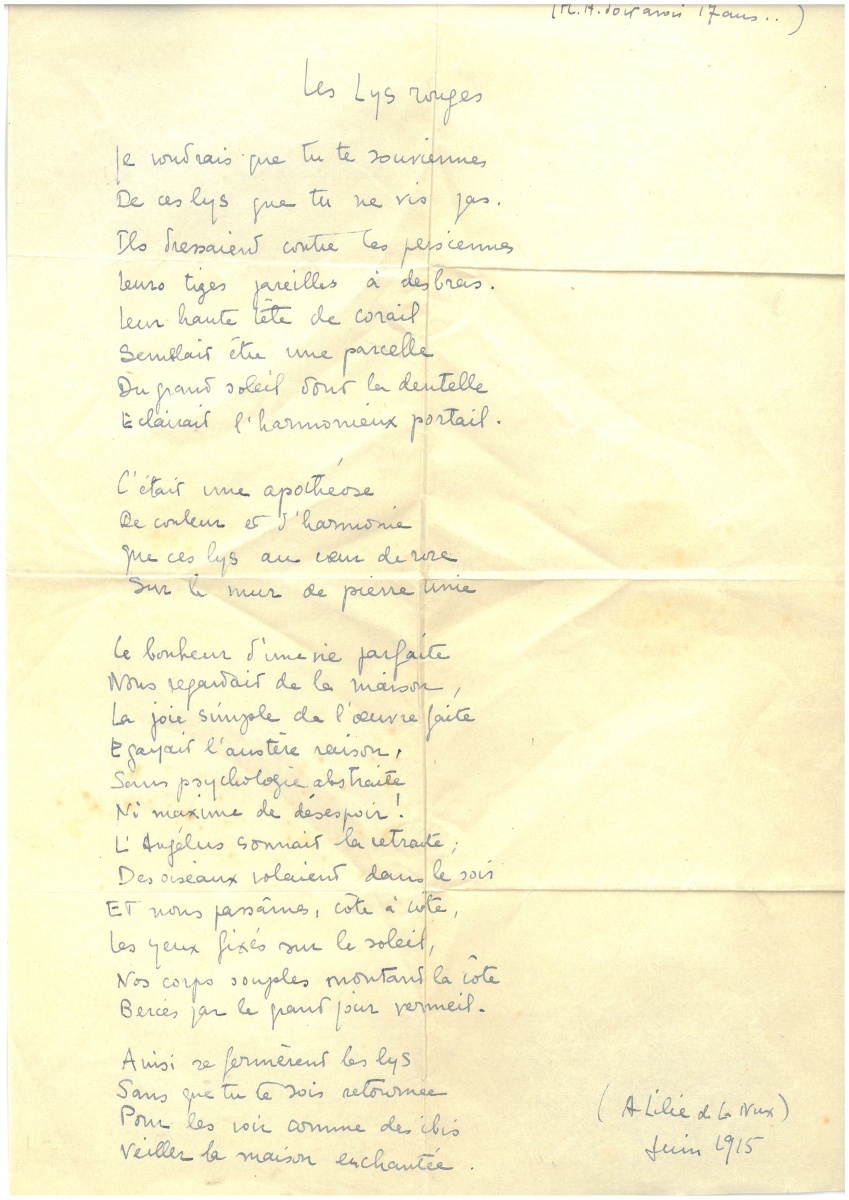 (M.A. doit avoir 17 ans..)
Les Lys rouges
Je voudrais que tu te souviennes
De ces lys que tu ne vis pas.
Ils dressaient contre les persiennes
Leurs tiges pareilles à des bras.
Leur haute tête de corail
Semblait être une parcelle
Du grand soleil dont la dentelle
Eclairait l'harmonieux portail.
C'était une apothéose
De couleur et d'harmonie
Que ces lys au cœur de rose
Sur le mur de pierre unie
Le bonheur d'une vie parfaite
Nous regardait de la maison,
La joie simple de l'œuvre faite
Egayait l'austère raison,
Sans psychologie abstraite
Ni maxime de désespoir !
L'Angélus sonnait la retraite ;
Des oiseaux volaient dans le soir
ET nous passâmes, côte à côte,
Les yeux fixés sur le soleil,
Nos corps souples montant la côte
Bercés par le grand jour vermeil.
Ainsi se fermèrent les lys
Sans que tu te sois retournée
Pour les voir comme des ibis
Veiller la maison enchantée.
(A Lilie de La Nux)
Juin 1915